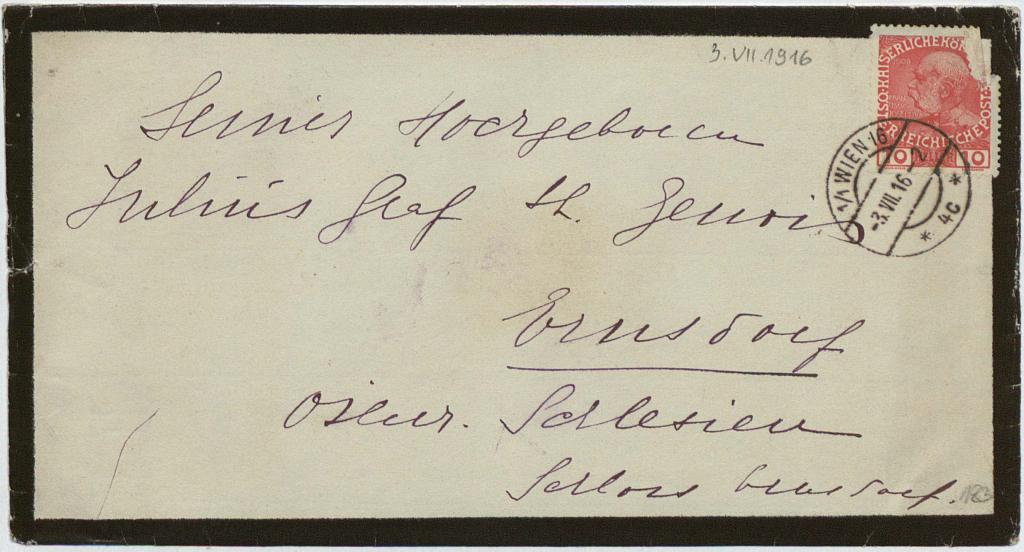 3. VII. 1916
KAISERLICHE KÖN
ERREICHISCHE POST
10 10
1/1 WIEN 1
-3.VII.16 - 2
* 4C *
Seiner Hochgeboren
Julius Graf St. Genois
Ernsdorf
Österr. Schlesien
Schloss Ernsdorf.
183